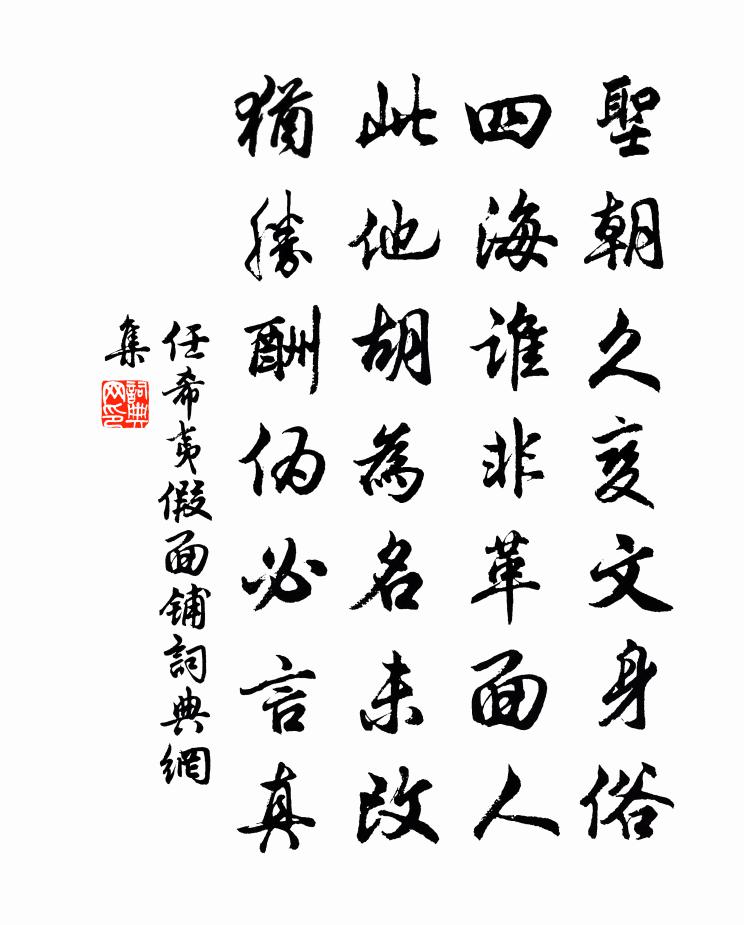 聖朝久變文身俗
四海誰非革面人
此他胡為名未改
猶勝酬伪必言真
任希夷假面鋪詞典網
集
詞典網印